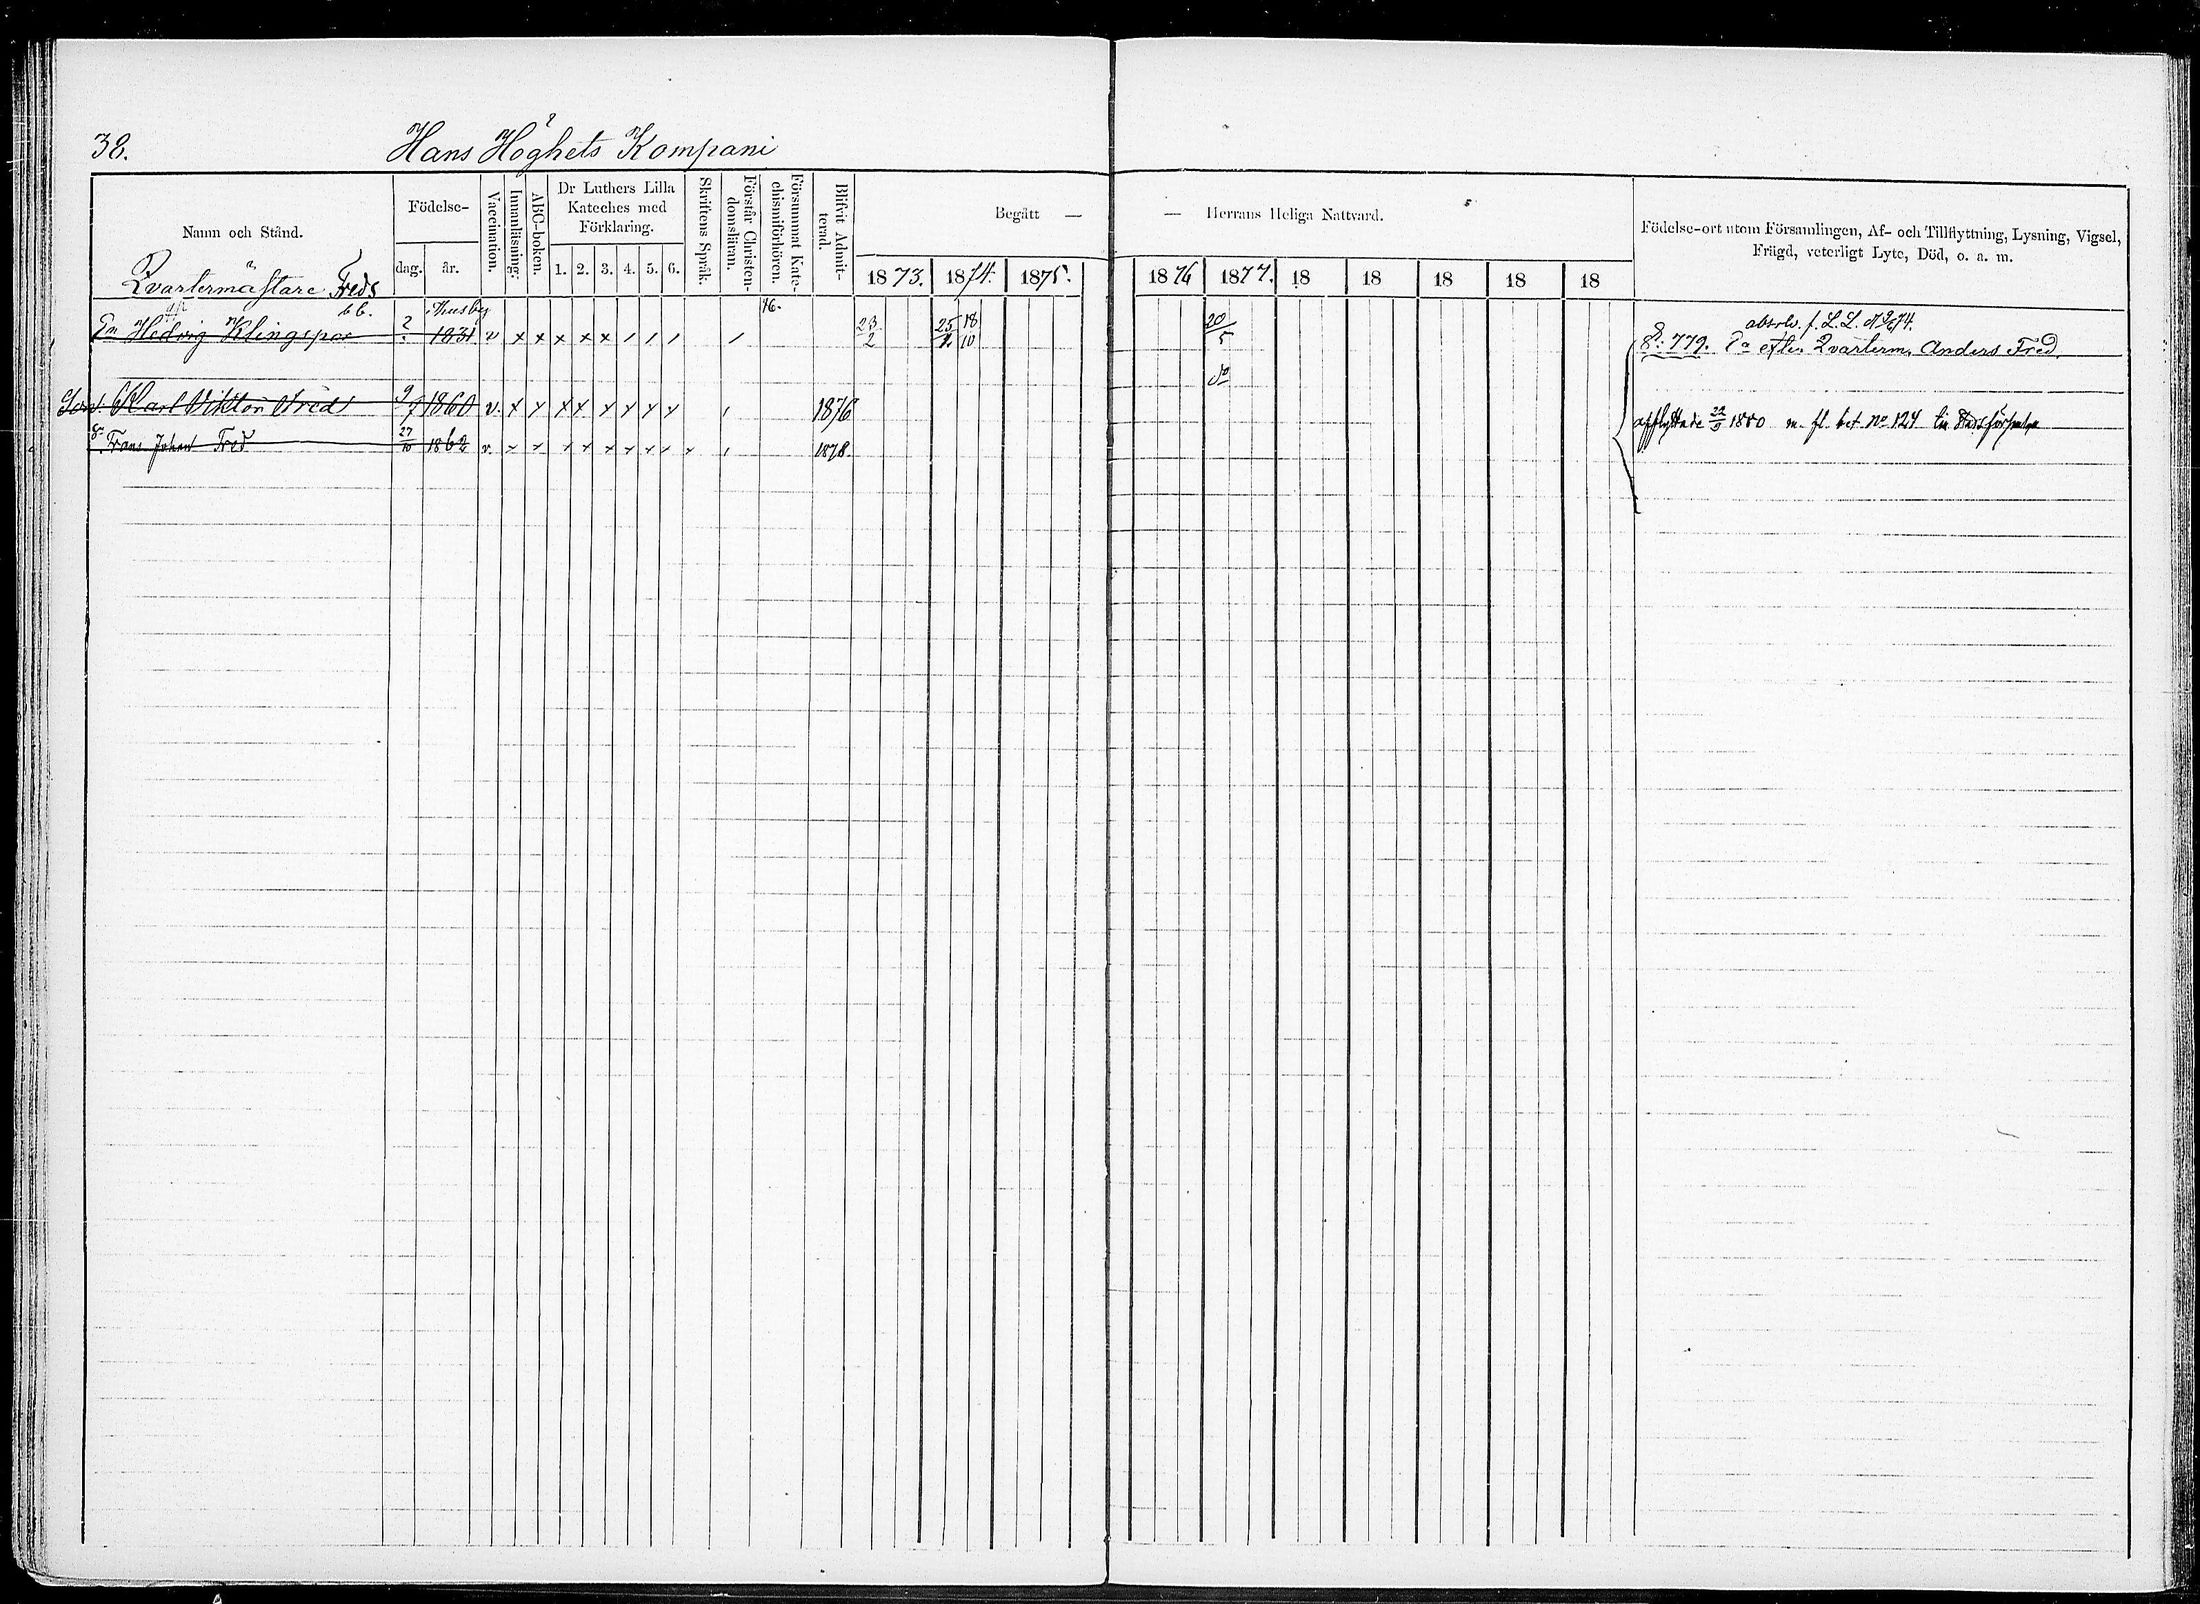 38. Hans Höghets Kompani
Namn och Stånd.
Födelse-
dag. år.
Vaccination.
Innanläsning.
ABC-boken.
Dr Luthers Lilla
Kateches med
Förklaring.
1. 2. 3. 4. 5. 6.
Skriftens Språk.
Förstår Christen-
domsläran.
Försummat Kate-
chismiförhören.
Blifvit Admit-
terad.
Begått — — Herrans Heliga Nattvard.
1873. 1874. 1875. 1876 1877. 18 18 18 18 18
Födelse-ort utom Församlingen, Af- och Tillflyttning, Lysning, Vigsel,
Frägd, veterligt Lyte, Död, o. a. m.
Qvartermästare Freds
Thusby 76. absolv. f. L. L.
En Hedvig Klingspor ? 1831 v x x x x x / / / / 23/2 18/10 20/5 S. 779. En efter Qvarterm. Anders Fred.
do
Son. Karl Viktor Fred 9/7 1860 v. x x x x x x x x / 1876 afflyttade 1880 m. fl. bet. No 124
Sn Frans Johan Fred 27/10 1862 v. x x x x x x x x x / 1878